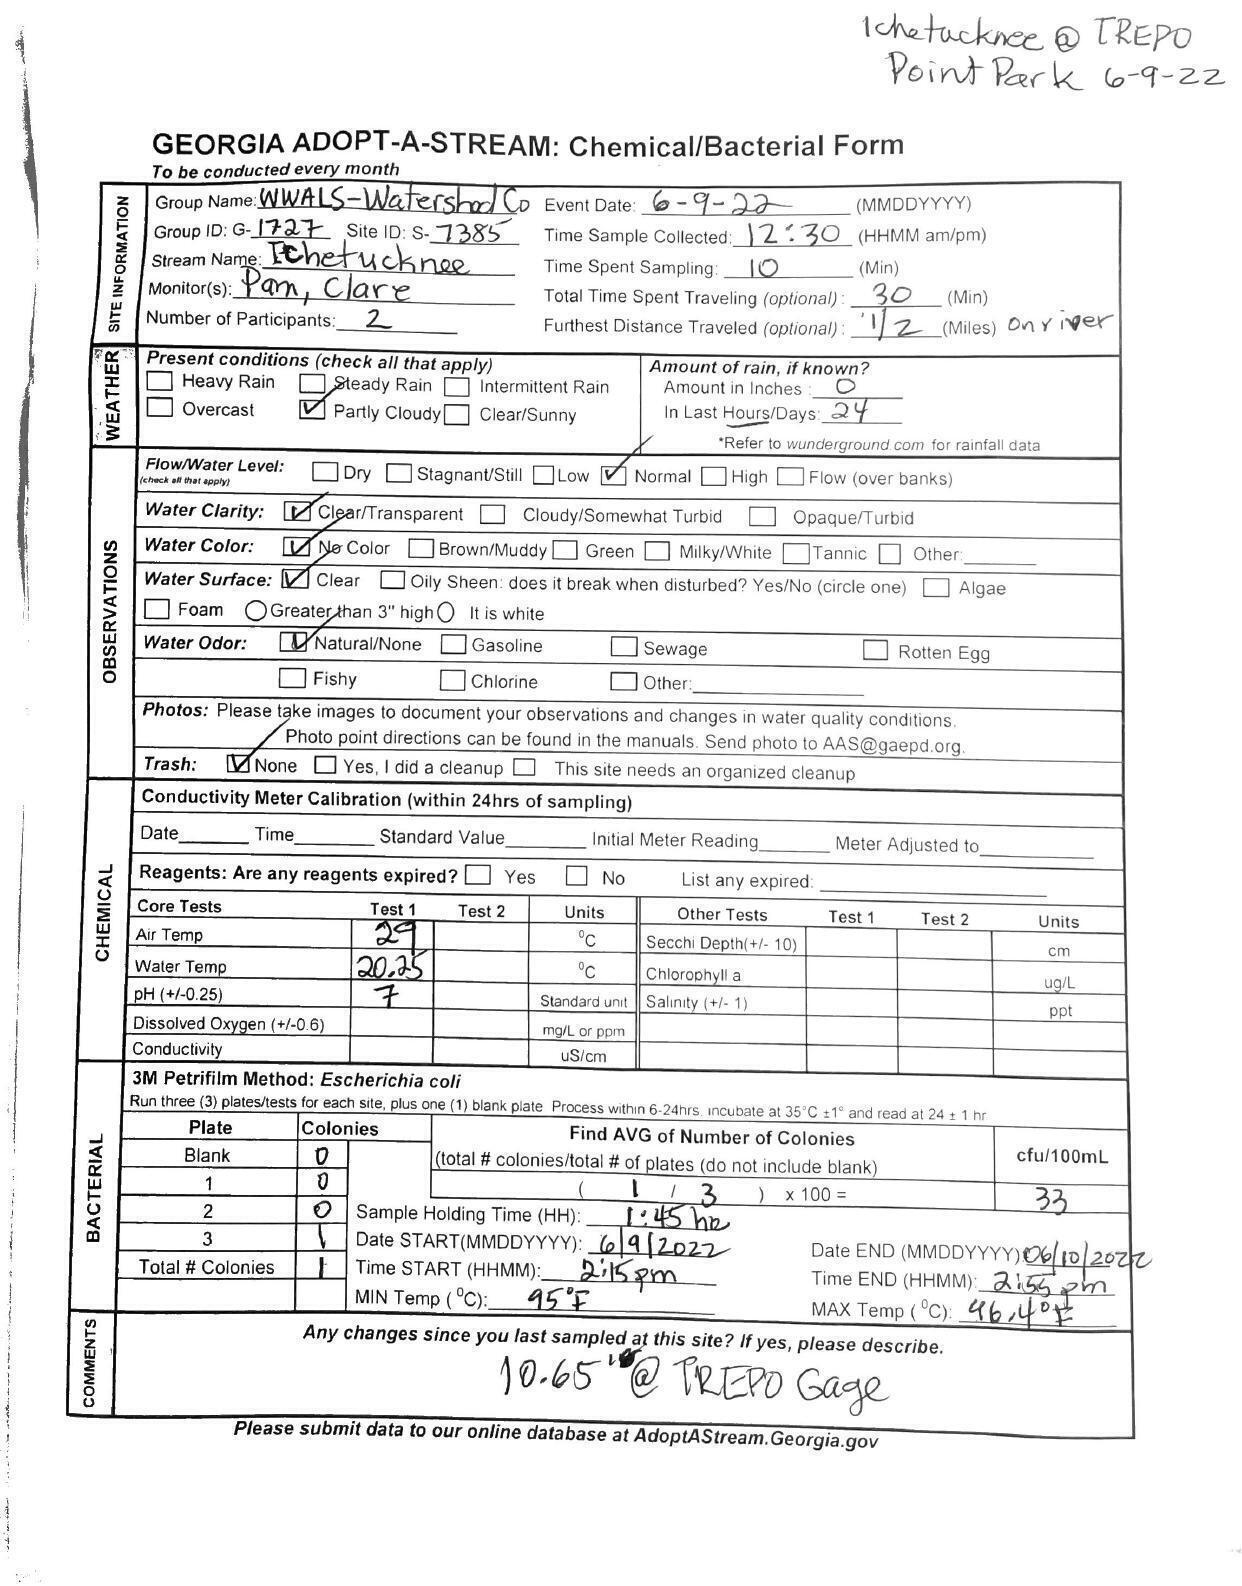 Ichetucknee @ TREPO
Point Park 6-9-22
GEORGIA ADOPT-A-STREAM: Chemical/Bacterial Form
To be conducted every month
SITE INFORMATION
Group Name: WWALS-Watershed Co Event Date: 6-9-22 (MMDDYYYY)
Group ID: G-1727 Site ID: S-7385 Time Sample Collected: 12:30 (HHMM am/pm)
Stream Name: Ichetucknee Time Spent Sampling: 10 (Min)
Monitor(s): Pam, Clare Total Time Spent Traveling (optional): 30 (Min)
Number of Participants: 2 Furthest Distance Traveled (optional): 1/2 (Miles) on river
WEATHER
Present conditions (check all that apply) Amount of rain, if known?
Heavy Rain Steady Rain Intermittent Rain Amount in Inches: 0
Overcast Partly Cloudy Clear/Sunny In Last Hours/Days: 24
*Refer to wunderground.com for rainfall data
OBSERVATIONS
Flow/Water Level: Dry Stagnant/Still Low Normal High Flow (over banks)
(check all that apply)
Water Clarity: Clear/Transparent Cloudy/Somewhat Turbid Opaque/Turbid
Water Color: No Color Brown/Muddy Green Milky/White Tannic Other:
Water Surface: Clear Oily Sheen: does it break when disturbed? Yes/No (circle one) Algae
Foam Greater than 3" high It is white
Water Odor: Natural/None Gasoline Sewage Rotten Egg
Fishy Chlorine Other:
Photos: Please take images to document your observations and changes in water quality conditions.
Photo point directions can be found in the manuals. Send photo to AAS@gaepd.org.
Trash: None Yes, I did a cleanup This site needs an organized cleanup
CHEMICAL
Conductivity Meter Calibration (within 24hrs of sampling)
Date Time Standard Value Initial Meter Reading Meter Adjusted to
Reagents: Are any reagents expired? Yes No List any expired:
Core Tests Test 1 Test 2 Units Other Tests Test 1 Test 2 Units
Air Temp 29 ⁰C Secchi Depth(+/- 10) cm
Water Temp 20.25 ⁰C Chlorophyll a ug/L
pH (+/-0.25) 7 Standard unit Salinity (+/- 1) ppt
Dissolved Oxygen (+/-0.6) mg/L or ppm
Conductivity uS/cm
BACTERIAL
3M Petrifilm Method: Escherichia coli
Run three (3) plates/tests for each site, plus one (1) blank plate Process within 6-24hrs, incubate at 35°C ±1° and read at 24 ± 1 hr
Plate Colonies Find AVG of Number of Colonies cfu/100mL
Blank 0 (total # colonies/total # of plates (do not include blank)
1 0 ( 1 / 3 ) x 100 = 33
2 0 Sample Holding Time (HH): 1:45 hr
3 1 Date START(MMDDYYYY): 6/9/2022 Date END (MMDDYYYY) 06/10/2022
Total # Colonies 1 Time START (HHMM): 2:15 pm Time END (HHMM): 2:55 pm
MIN Temp (⁰C): 95°F MAX Temp (⁰C): 96.4°F
COMMENTS
Any changes since you last sampled at this site? If yes, please describe.
10.65 @ TREPO Gage
Please submit data to our online database at AdoptAStream.Georgia.gov